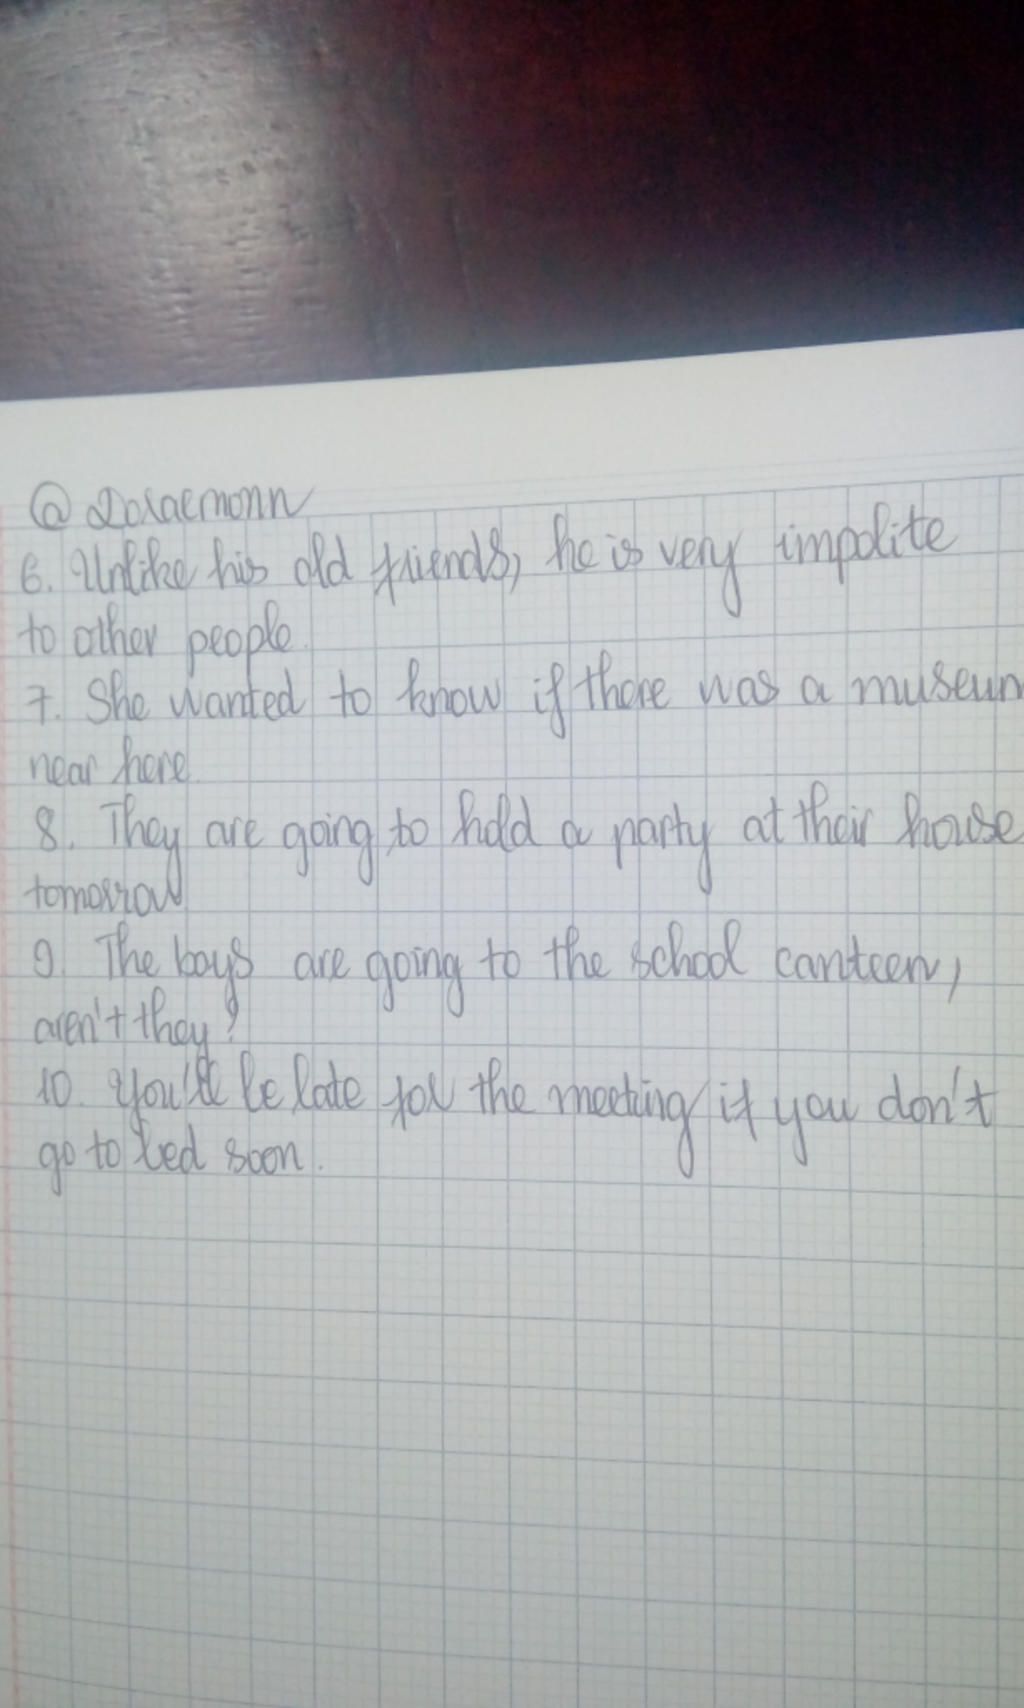 @ Doraemonn
6. Unlike his old friends, he is very impolite
to other people.
7. She wanted to know if there was a museum
near here.
8. They are going to hold a party at their house
tomorrow
9. The boys are going to the school canteen,
aren't they?
10. You'll be late for the meeting if you don't
go to bed soon.